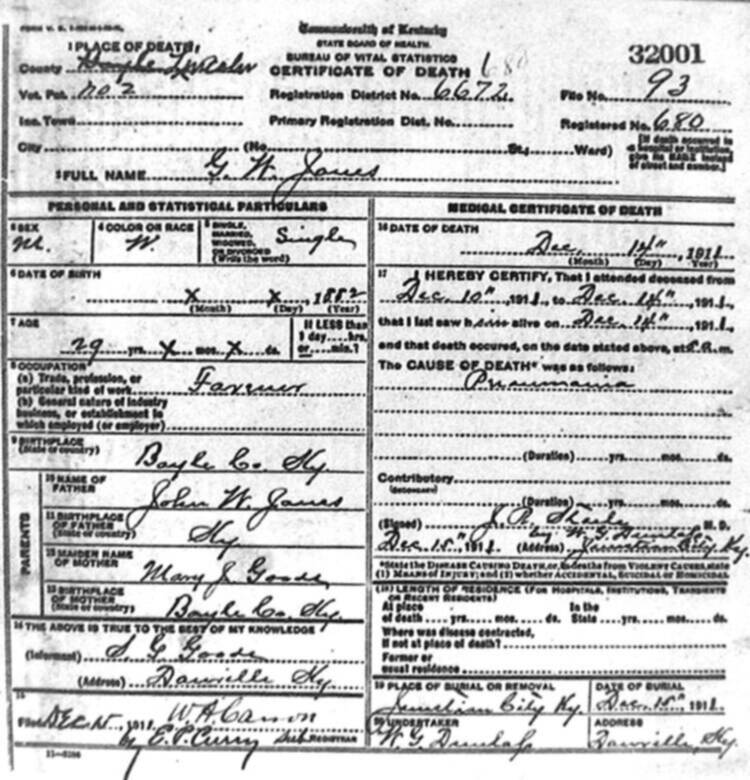 Commonwealth of Kentucky
STATE BOARD OF HEALTH.
BUREAU OF VITAL STATISTICS
CERTIFICATE OF DEATH 680
32001
1 PLACE OF DEATH,
County Boyle Lincoln
Vot. Pct. No 2
Registration District No. 6672
File No. 93
Inc. Town
Primary Registration Dist. No.
Registered No. 680
City (No. St.; Ward)
[If death occurred in a hospital or institution, give its NAME instead of street and number.]
2 FULL NAME G. W. Jones
PERSONAL AND STATISTICAL PARTICULARS
3 SEX M.
4 COLOR OR RACE W.
5 SINGLE, MARRIED, WIDOWED, OR DIVORCED (Write the word) Single
6 DATE OF BIRTH
x x, 1882
(Month) (Day) (Year)
7 AGE
29 yrs. x mos. x ds.
If LESS than 1 day....hrs. or....min.?
8 OCCUPATION
(a) Trade, profession, or particular kind of work Farmer
(b) General nature of industry
business, or establishment in
which employed (or employer)
9 BIRTHPLACE
(State or country) Boyle Co. Ky
PARENTS
10 NAME OF FATHER John W. Jones
11 BIRTHPLACE OF FATHER (State or country) Ky
12 MAIDEN NAME OF MOTHER Mary J Goode
13 BIRTHPLACE OF MOTHER (State or country) Boyle Co. Ky.
14 THE ABOVE IS TRUE TO THE BEST OF MY KNOWLEDGE
(Informant) S G Goode
(Address) Danville Ky
15
Filed DEC 15, 1911 W. A. Carson
by E. P. Curry Sub REGISTRAR
11-3184
MEDICAL CERTIFICATE OF DEATH
16 DATE OF DEATH
Dec. 14", 1911
(Month) (Day) (Year)
17 I HEREBY CERTIFY, That I attended deceased from
Dec 10", 1911, to Dec. 14", 1911,
that I last saw him alive on Dec. 14", 1911,
and that death occured, on the date stated above, at m.
The CAUSE OF DEATH* was as follows:
Pneumania
(Duration) yrs. mos. ds.
Contributory
(SECONDARY)
(Duration) yrs. mos. ds.
(Signed) J. R. M. D.
by W. G. Dunlap
Dec 15", 1911 (Address) Junction City Ky.
*State the DISEASE CAUSING DEATH, or, in deaths from VIOLENT CAUSES, state
(1) MEANS OF INJURY; and (2) whether ACCIDENTAL, SUICIDAL or HOMICIDAL
(18) LENGTH OF RESIDENCE (FOR HOSPITALS, INSTITUTIONS, TRANSIENTS OR RECENT RESIDENTS)
At place of death yrs. mos. ds. In the State yrs. mos. ds.
Where was disease contracted,
if not at place of death?
Former or
usual residence
19 PLACE OF BURIAL OR REMOVAL Junction City Ky.
DATE OF BURIAL Dec. 15", 1911
20 UNDERTAKER W. G. Dunlap
ADDRESS Danville, Ky.